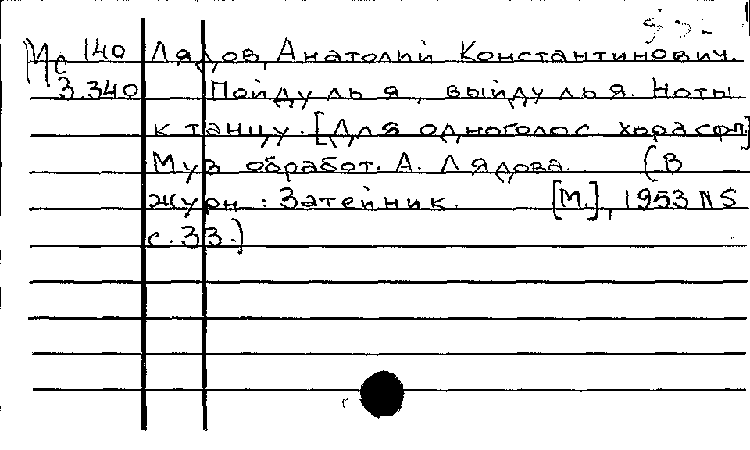 Мс 140 Лядов, Анатолий Константинович.
3.340 Пойду ль я, выйду ль я. Ноты
к танцу. [Для одноголос хора с фп]
Муз обработ. А. Лядова. (В
журн : Затейник. [М.], 1953 N 5
с. 33.)